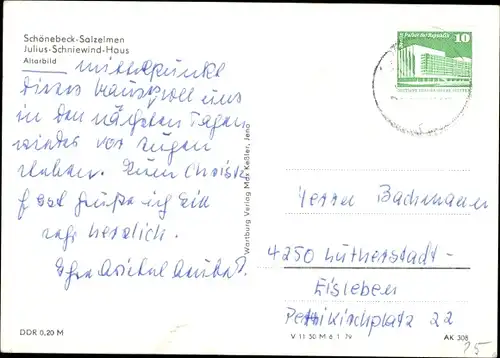 Schönebeck-Salzelmen
Julius-Schniewind-Haus
Altarbild
Mittelpunkt
dieses Hauses soll uns
in den nächsten Tagen
wieder vor Augen
stehen. Zum Christ-
fest grüße ich Sie
herzlich.
Ihre
DDR 0,20 M
Wartburg Verlag Max Keßler, Jena
Palast der Republik
10
Herrn Bachmann
4250 Lutherstadt-
Eisleben
Petrikirchplatz 22
V 11 50 M 6 1 79
AK 308
25